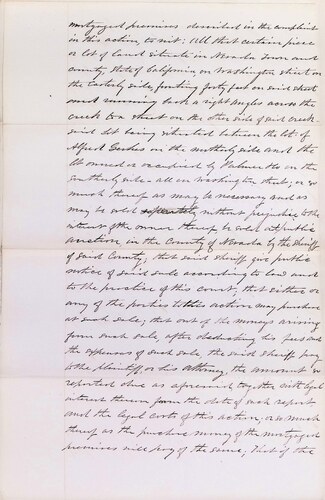 mortgaged premises described in the complaint
in this action, to wit: All that certain piece
or lot of land situate in Nevada Town and
county, State of California on Washington street on
the Easterly side, fronting forty feet on said street
and running back a right angles across the
creek to a street on the other side of said creek
said lot being situated between the lot of
Alfred on the northerly side and the
lot owned or occupied by Palmer on the
southerly side all on Washington street; or so
much thereof as may be necessary and as
may be sold separately without prejudice to the
interest of the owner thereof be sold at public
auction, in the County of Nevada by the Sheriff
of said County; that said sheriff give public
notice of said sale according to law and
to the practice of this court, that either or
any of the parties to this action may purchase
at such sale; that out of the moneys arising
from such sale, after deducting his fees and
the expenses of such sale, the said sheriff pay
to the plaintiff, or his attorney, the amount so
reported due as aforesaid together with legal
interest thereon from the date of such report
and the legal costs of this action; or so much
thereof as the purchase money of the mortgaged
premises will pay of the same. That if the